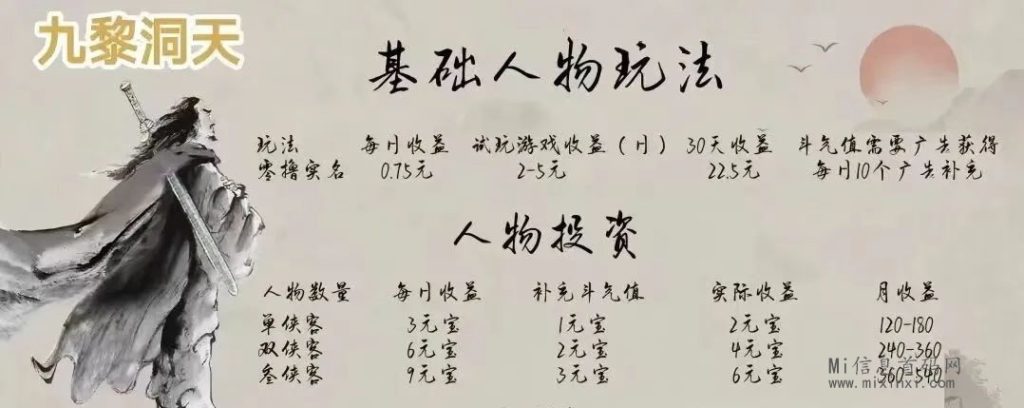 九黎洞天
基础人物玩法
玩法 每日收益 试玩游戏收益(日) 30天收益 斗气值需要广告获得
零撸实名 0.75元 2-5元 22.5元 每日10个广告补充
人物投资
人物数量 每日收益 补充斗气值 实际收益 月收益
单侠客 3元宝 1元宝 2元宝 120-180
双侠客 6元宝 2元宝 4元宝 240-360
叁侠客 9元宝 3元宝 6元宝 360-540
Mi信息首码网
www.mixinxr.com